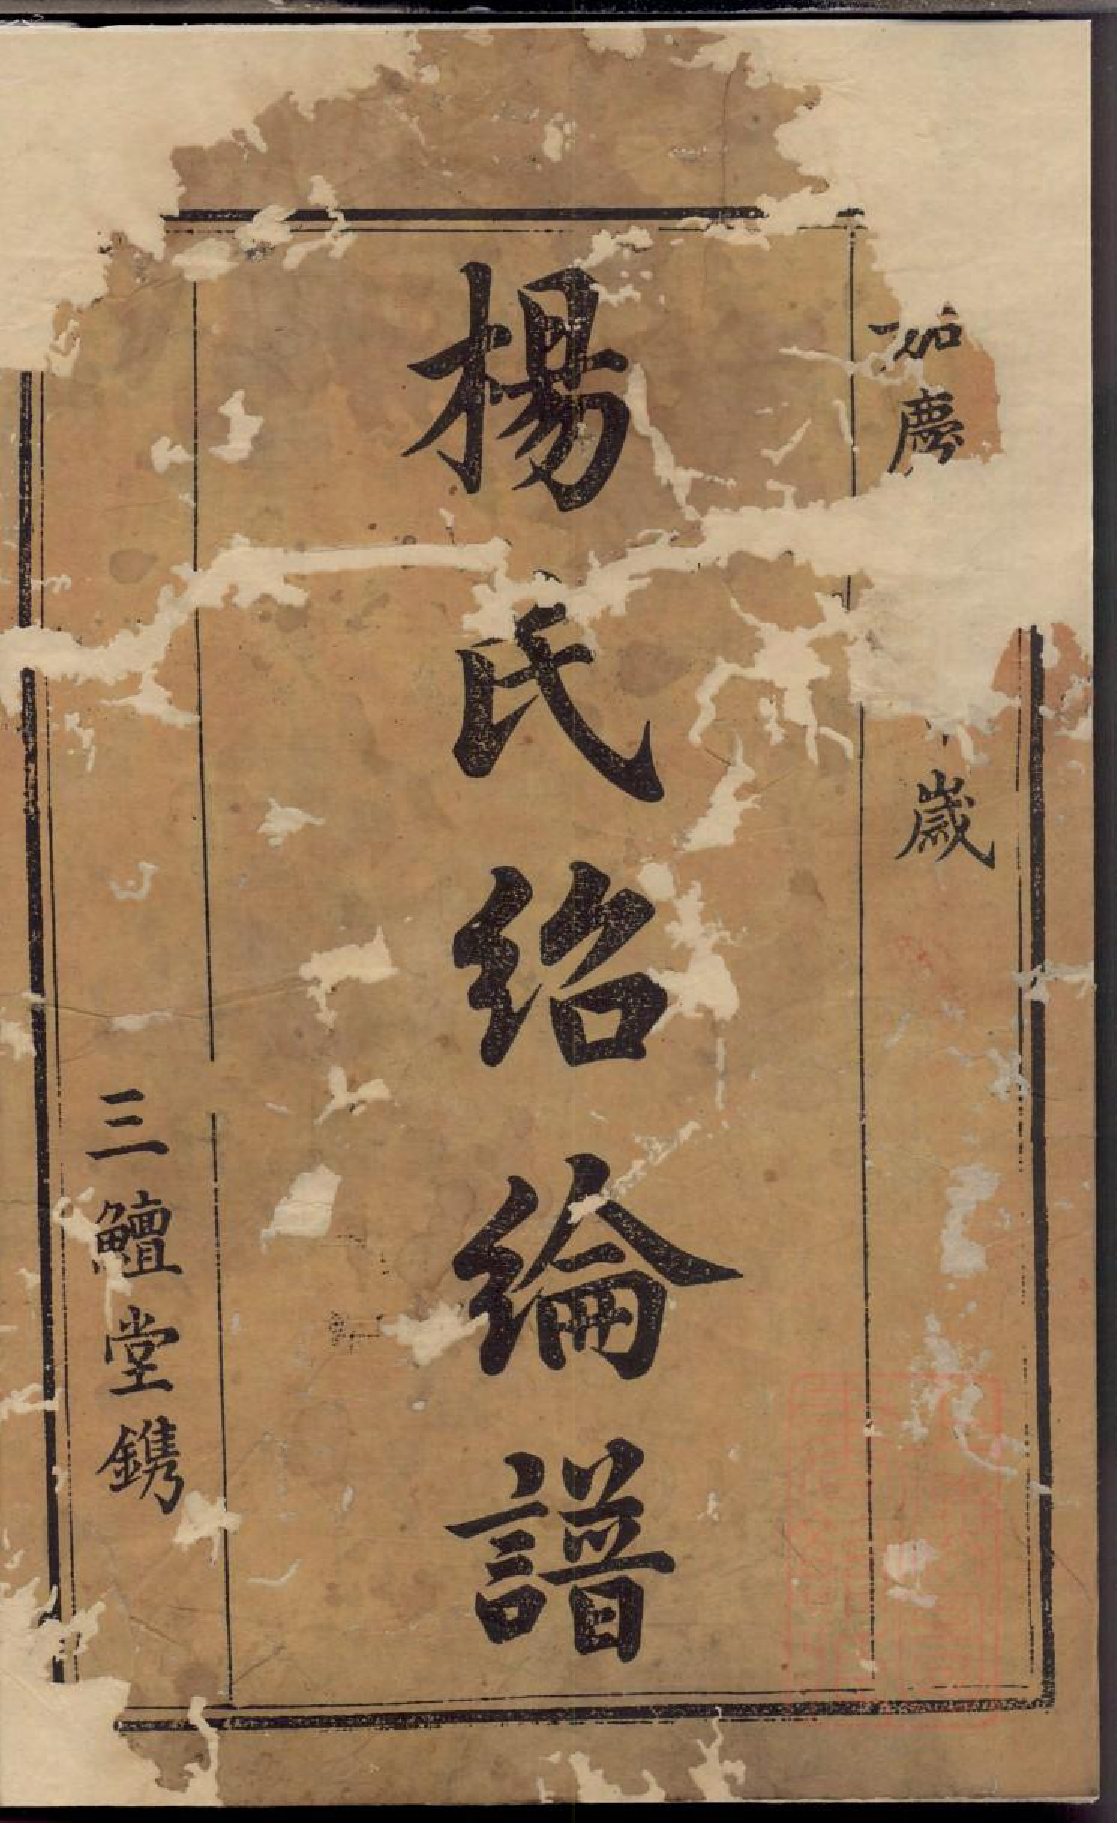 慶
歲
楊氏紹綸譜
三鱣堂鐫